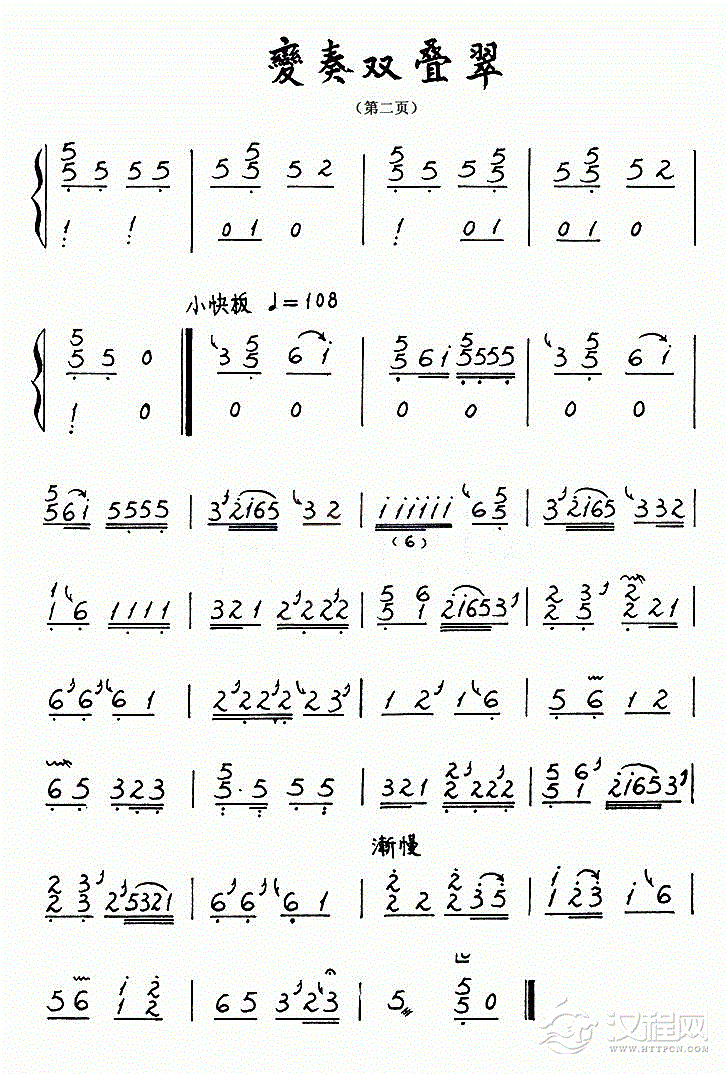 變奏双叠翠
（第二页）
5 5 5 5 5 | 5 5 5 5 2 | 5 5 5 5 5 5 | 5 5 5 5 2
1 1 | 0 1 0 | 1 0 1 | 0 1 0
小快板 ♩=108
5 5 5 0 | 3 5 5 6 i | 5 5 6 i 5 5 5 5 5 | 3 5 5 6 i
1 0 | 0 0 | 0 0 | 0 0
5 5 6 i 5 5 5 5 | 3 2 1 6 5 3 2 | i i i i i i 6 5 5 | 3 2 1 6 5 3 3 2
(6)
1 1 6 1 1 1 1 | 3 2 1 2 2 2 2 | 5 5 6 1 2 1 6 5 3 | 2 2 3 5 2 2 2 1
6 6 6 1 | 2 2 2 2 2 3 | 1 2 1 6 | 5 6 1 2
6 5 3 2 3 | 5 5 . 5 5 5 | 3 2 1 2 2 2 2 2 | 5 5 6 1 2 1 6 5 3
漸慢
2 2 3 3 2 5 3 2 1 | 6 6 6 1 | 2 2 2 2 2 3 5 | i 1 2 3 i 6
5 6 i 1 2 2 | 6 5 3 2 3 | 5 5 5 0
汉程网
HTTPCN.COM